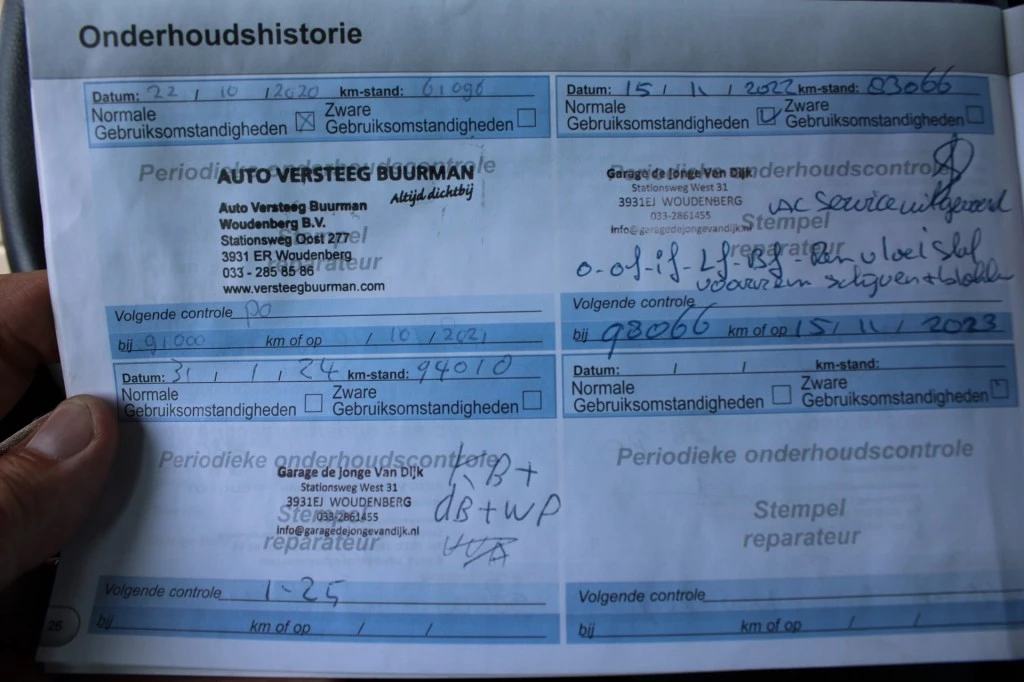 Onderhoudshistorie
Datum: 22 / 10 / 2020 km-stand: 61096
Normale
Gebruiksomstandigheden
Zware
Gebruiksomstandigheden
Periodieke onderhoudscontrole
AUTO VERSTEEG BUURMAN
Altijd dichtbij
Auto Versteeg Buurman
Woudenberg B.V.
Stationsweg Oost 277
3931 ER Woudenberg
033 - 285 85 86
www.versteegbuurman.com
Stempel
reparateur
Volgende controle po
bij 91000 km of op / 10 / 2021
Datum: 15 / 11 / 2022 km-stand: 83066
Normale
Gebruiksomstandigheden
Zware
Gebruiksomstandigheden
Periodieke onderhoudscontrole
Garage de Jonge Van Dijk
Stationsweg West 31
3931EJ WOUDENBERG
033-2861455
info@garagedejongevandijk.nl
Stempel
reparateur
AC Service uitgevoerd
o-of-if-Lf-Bf- Remvloeistof
voorrem schijven+blokken
Volgende controle
bij 98066 km of op 15 / 11 / 2023
Datum: 31 / 1 / 24 km-stand: 94010
Normale
Gebruiksomstandigheden
Zware
Gebruiksomstandigheden
Periodieke onderhoudscontrole
Garage de Jonge Van Dijk
Stationsweg West 31
3931EJ WOUDENBERG
033-2861455
info@garagedejongevandijk.nl
Stempel
reparateur
KB+
dB+WP
Volgende controle 1-25
bij km of op / /
Datum: / / km-stand:
Normale
Gebruiksomstandigheden
Zware
Gebruiksomstandigheden
Periodieke onderhoudscontrole
Stempel
reparateur
Volgende controle
bij km of op / /
26